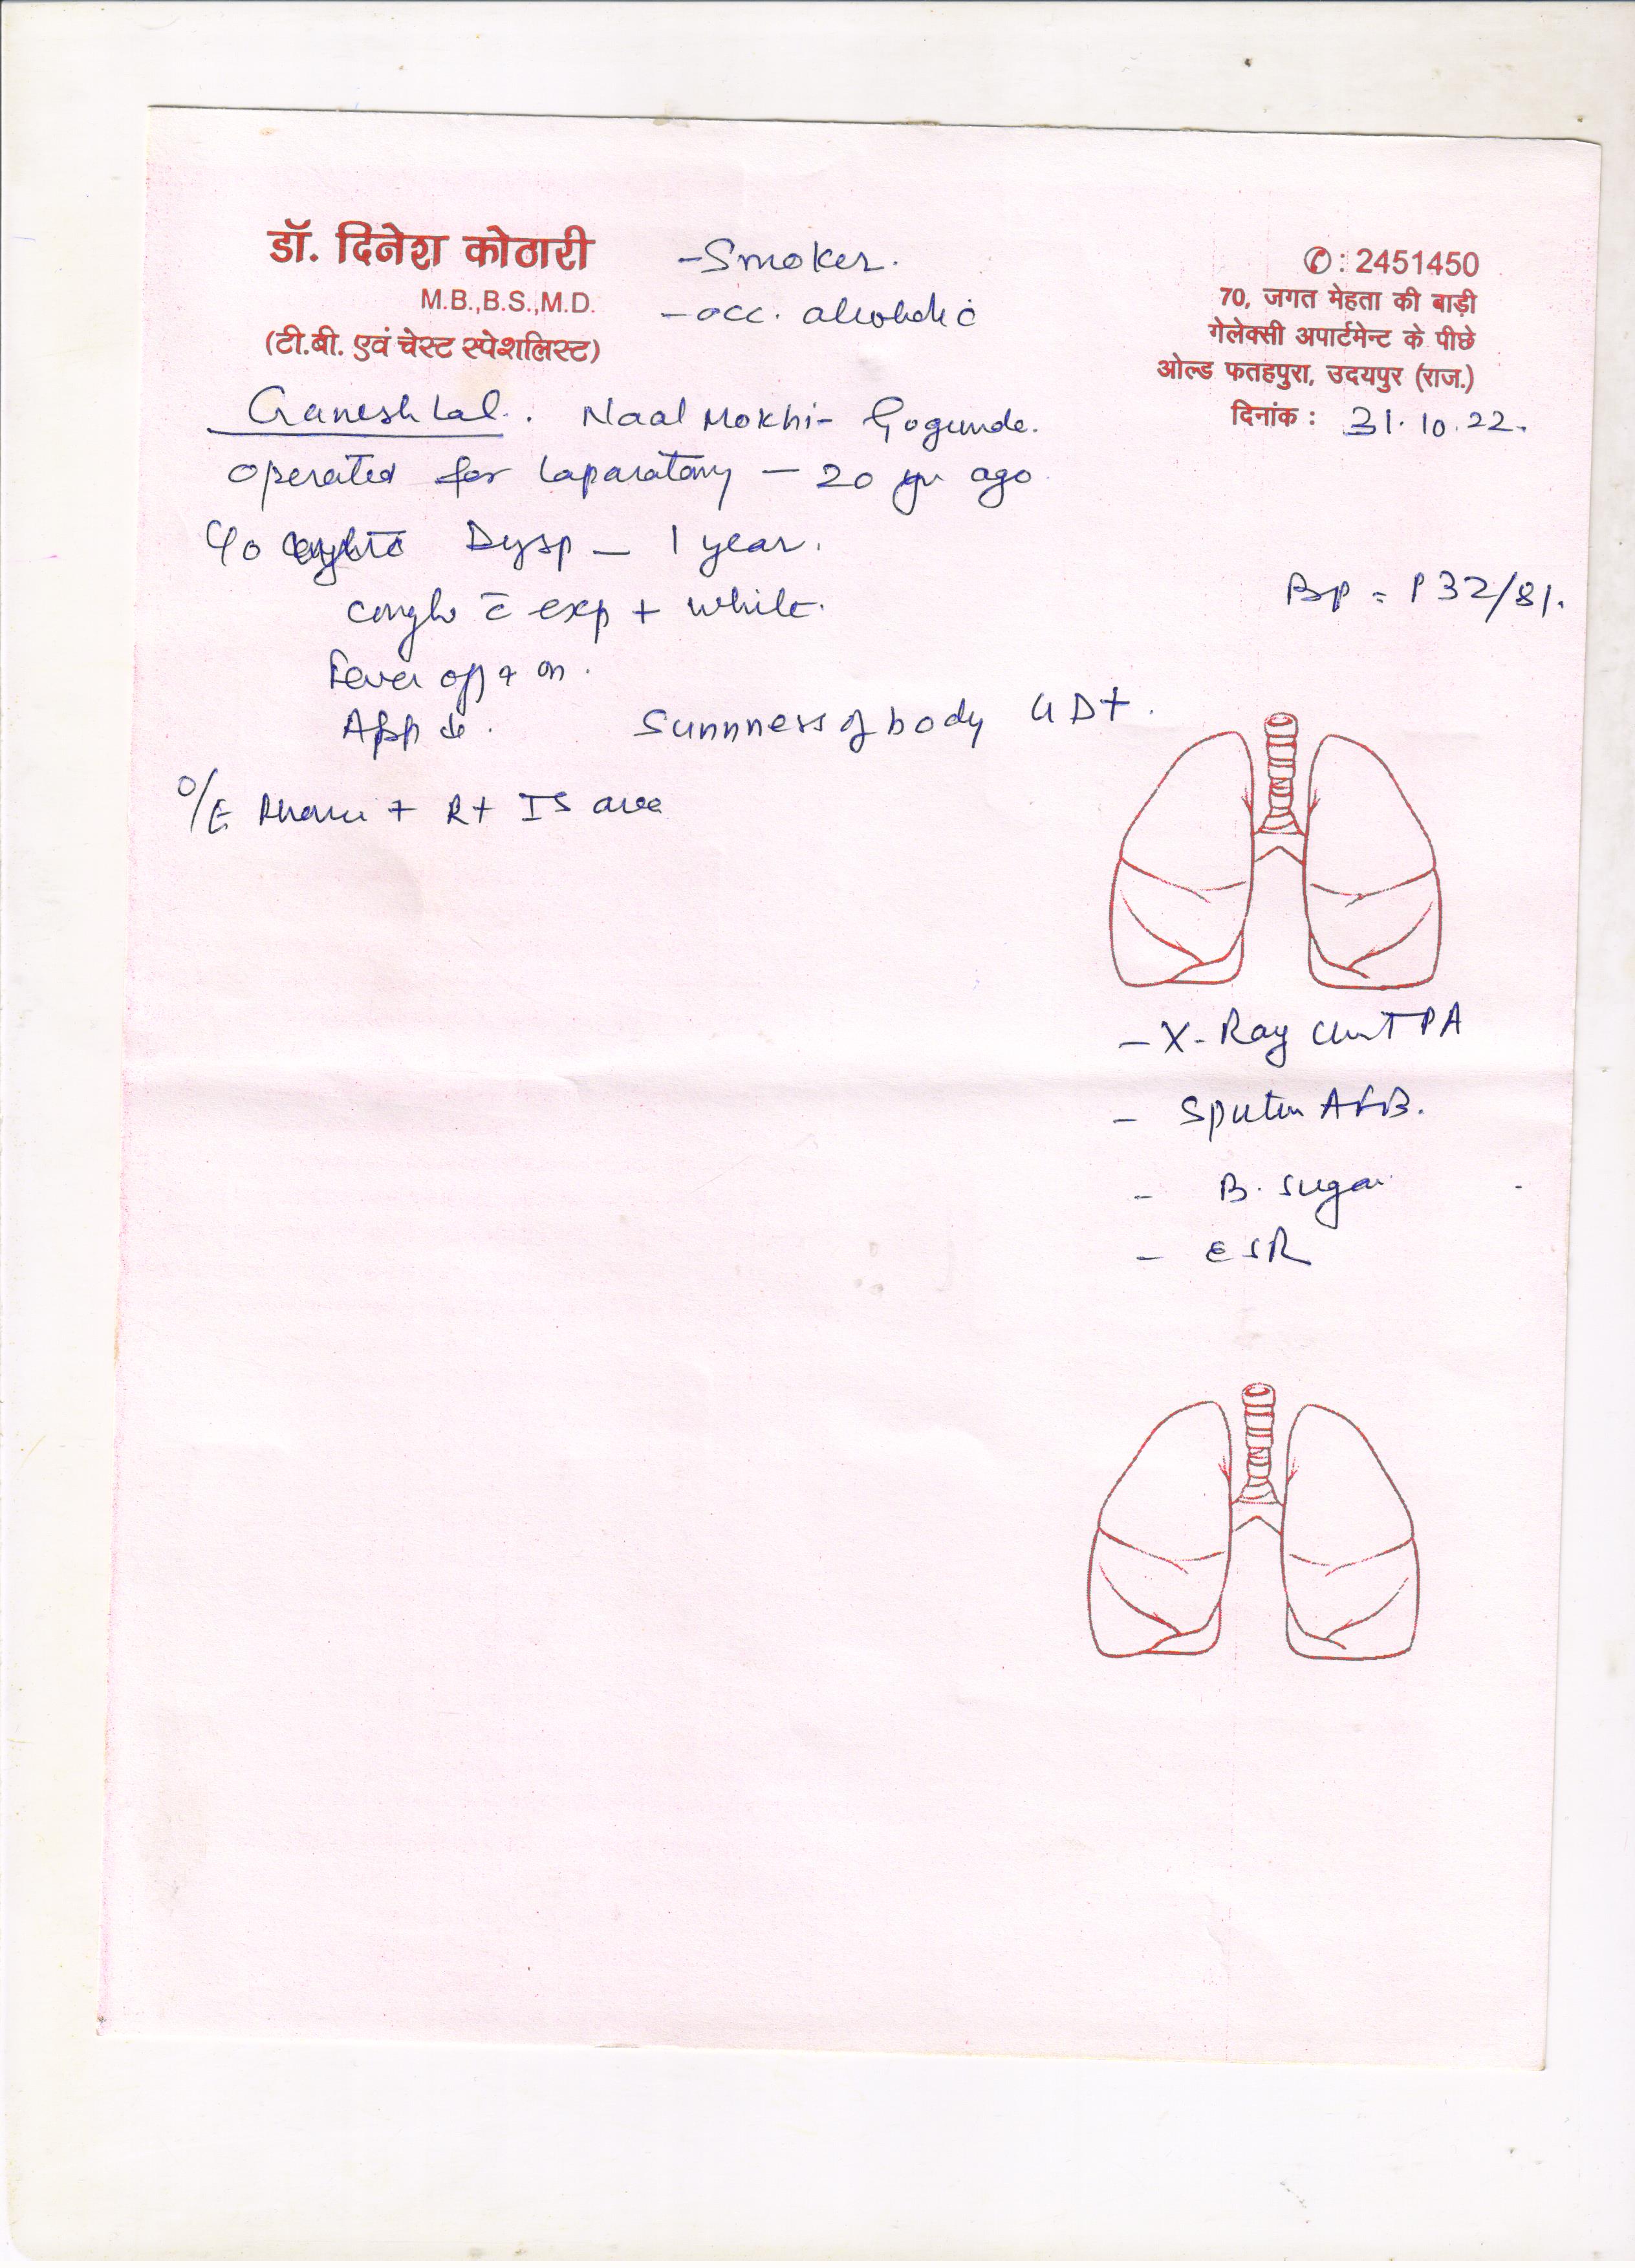 डॉ. दिनेश कोठारी
M.B.,B.S.,M.D.
(टी.बी. एवं चेस्ट स्पेशलिस्ट)
- Smoker.
- occ. alcoholic
✆: 2451450
70, जगत मेहता की बाड़ी
गेलेक्सी अपार्टमेन्ट के पीछे
ओल्ड फतहपुरा, उदयपुर (राज.)
दिनांक : 31.10.22.
Ganesh Lal. Naal Mokhi - Gogunda.
Operated for Laparatomy - 20 yr ago
C/o Dysp - 1 year.
Cough c̄ exp + white.
Fever off + on.
App ↓.
Sunnness of body GD+.
BP = 132/81.
O/E + Rt IS area
- X-Ray Chest PA
- Sputum AFB.
- B. Sugar
- ESR